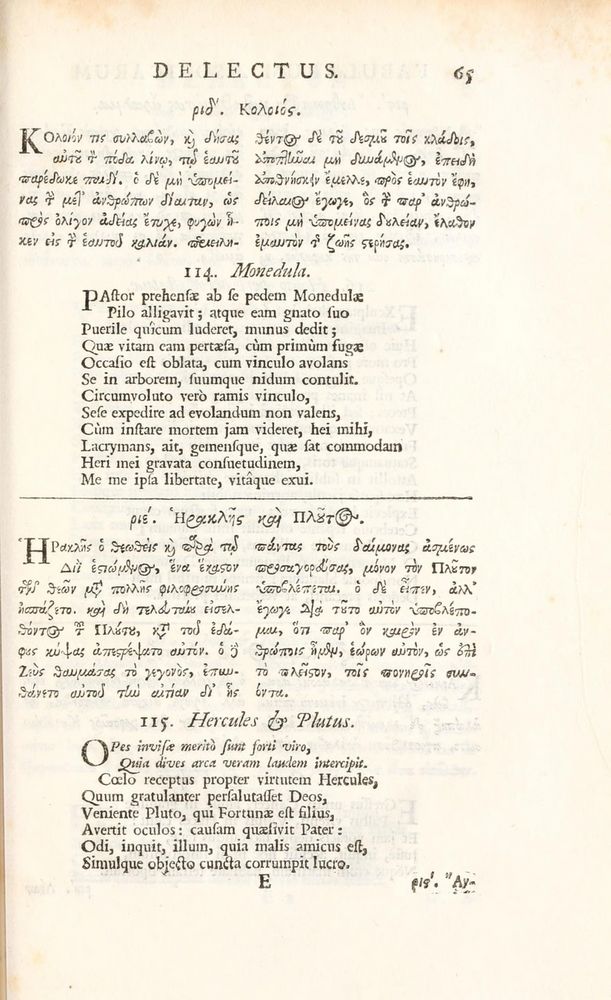 DELECTUS. 65
ριδʹ. Κολοιός.
ΚΟλοιόν τις συλλαβὼν, κὶ δήσας
αὐτοῦ τὸν πόδα λίνῳ, τῷ ἑαυτοῦ
παρέδωκε παιδί. ὁ δὲ μὴ ὑπομεί-
νας τὴν μετ' ἀνθρώπων δίαιταν, ὡς
πρὸς ὀλίγον ἀδείας ἔτυχε, φυγὼν ἧ-
κεν εἰς τὴν ἑαυτοῦ καλιάν. περιειλη-
θέντος δὲ τοῦ δεσμοῦ τοῖς κλάδοις,
ἀποπτῆναι μὴ δυνάμενος, ἐπειδὴ
ἀποθνήσκειν ἔμελλε, πρὸς ἑαυτὸν ἔφη,
δείλαιος ἔγωγε, ὃς τὴν παρ' ἀνθρώ-
ποις μὴ ὑπομείνας δουλείαν, ἔλαθον
ἐμαυτὸν τῆς ζωῆς στερήσας.
114. Monedula.
PAstor prehensæ ab se pedem Monedulæ
Pilo alligavit; atque eam gnato suo
Puerile quîcum luderet, munus dedit;
Quæ vitam eam pertæsa, cùm primùm fugæ
Occasio est oblata, cum vinculo avolans
Se in arborem, suumque nidum contulit.
Circumvoluto verò ramis vinculo,
Sese expedire ad evolandum non valens,
Cùm instare mortem jam videret, hei mihi,
Lacrymans, ait, gemensque, quæ sat commodam
Heri mei gravata consuetudinem,
Me me ipsa libertate, vitâque exui.
ριεʹ. Ἡρακλῆς καὶ Πλοῦτος.
ἩΡακλῆς ὁ θεωθεὶς κὶ παρὰ τῷ
Διῒ ἑστιώμενος, ἕνα ἕκαστον
τῶν θεῶν μετὰ πολλῆς φιλοφροσύνης
ἠσπάζετο. καὶ δὴ τελευταίου εἰσελ-
θόντος τοῦ Πλούτου, κατὰ τοῦ ἐδά-
φους κύψας ἀπεστρέψατο αὐτόν. ὁ δὲ
Ζεὺς θαυμάσας τὸ γεγονὸς, ἐπυν-
θάνετο αὐτοῦ τὴν αἰτίαν δι' ἧς
πάντας τοὺς δαίμονας ἀσμένως
προσαγορεύσας, μόνον τὸν Πλοῦτον
ὑποβλέπεται. ὁ δὲ εἶπεν, ἀλλ'
ἔγωγε διὰ τοῦτο αὐτὸν ὑποβλέπο-
μαι, ὅτι παρ' ὃν καιρὸν ἐν ἀν-
θρώποις ἤμην, ἑώρων αὐτὸν, ὡς ἐπὶ
τὸ πλεῖστον, τοῖς πονηροῖς συν-
όντα.
115. Hercules & Plutus.
OPes invisæ meritò sunt forti viro,
Quia dives arca veram laudem intercipit.
Cœlo receptus propter virtutem Hercules,
Quum gratulanter persalutasset Deos,
Veniente Pluto, qui Fortunæ est filius,
Avertit oculos: causam quæsivit Pater:
Odi, inquit, illum, quia malis amicus est,
Simulque objecto cuncta corrumpit lucro.
E ριςʹ. Ἀγ-